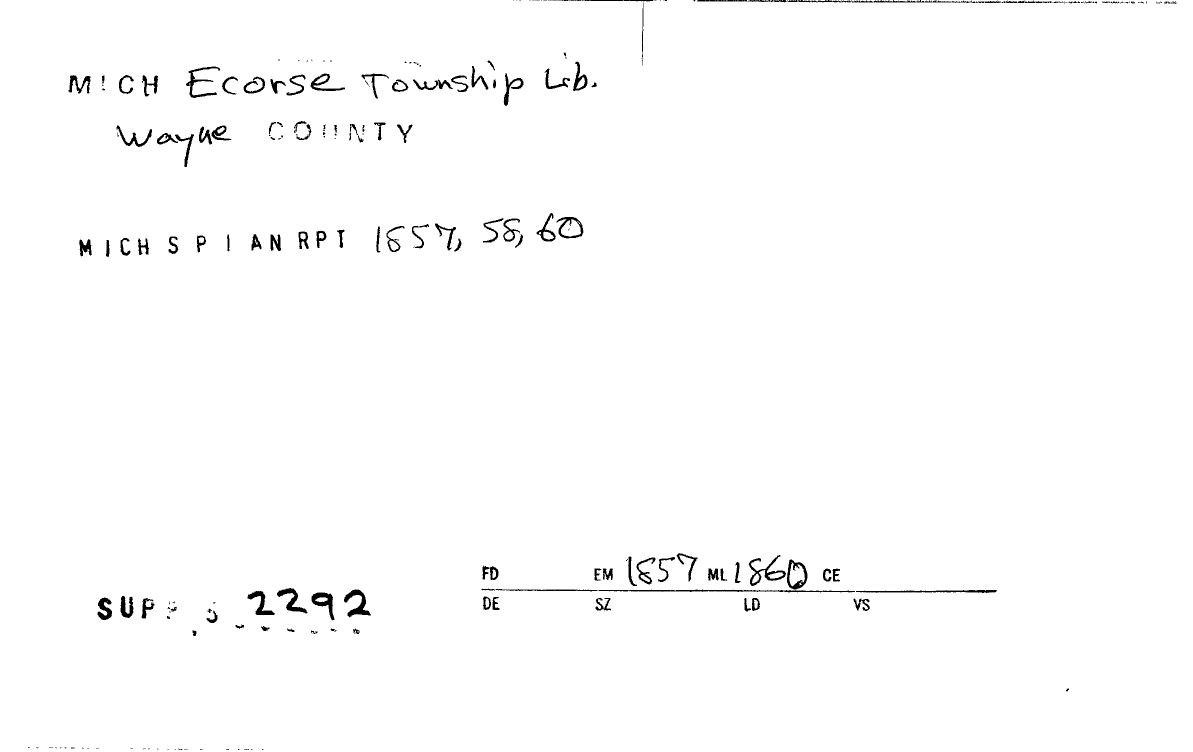 MICH Ecorse Township Lib.
Wayne COUNTY
MICH S P I AN RPT 1857, 58, 60
FD EM 1857 ML 1860 CE
SUPP 2292
DE SZ LD VS